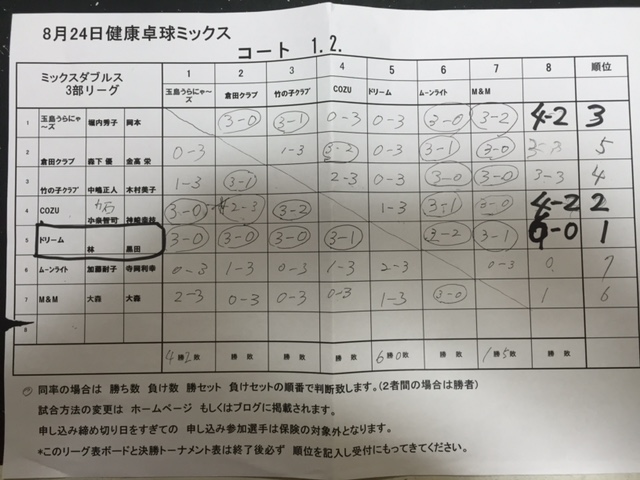 8月24日健康卓球ミックス
コート 1.2.
ミックスダブルス 3部リーグ 1 玉島うらにゃ～ズ 2 倉田クラブ 3 竹の子クラブ 4 COZU 5 ドリーム 6 ムーンライト 7 M&M 8 順位
1 玉島うらにゃ～ズ 堀内秀子 岡本 3-0 3-1 0-3 0-3 3-0 3-2 4-2 3
2 倉田クラブ 森下 優 金高 栄 0-3 1-3 3-2 0-3 3-1 3-0 3-3 5
3 竹の子クラブ 中嶋正人 木村美子 1-3 3-1 2-3 0-3 3-0 3-0 3-3 4
4 COZU 小泉智司 3-0 2-3 3-2 1-3 3-1 3-0 4-2 2
5 ドリーム 林 黒田 3-0 3-0 3-0 3-1 3-2 3-1 6-0 1
6 ムーンライト 加藤耐子 寺岡利幸 0-3 1-3 0-3 1-3 2-3 0-3 0 7
7 M&M 大森 大森 2-3 0-3 0-3 0-3 1-3 3-0 1 6
8
4勝2敗 勝 敗 勝 敗 勝 敗 6勝0敗 勝 敗 1勝5敗 勝 敗
同率の場合は 勝ち数 負け数 勝セット 負けセットの順番で判断致します。(2者間の場合は勝者)
試合方法の変更は ホームページ もしくはブログに掲載されます。
申し込み締め切り日をすぎての 申し込み参加選手は保険の対象外となります。
*このリーグ表ボードと決勝トーナメント表は終了後必ず 順位を記入し受付にもってきてください。